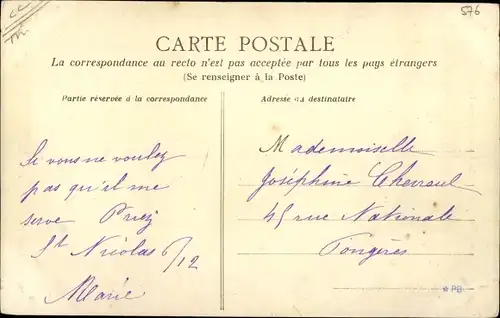 576
CARTE POSTALE
La correspondance au recto n'est pas acceptée par tous les pays étrangers
(Se renseigner à la Poste)
Partie réservée à la correspondance
Si vous ne voulez
pas qu'il me
serve Priez
St Nicolas 6/12
Marie
Adresse du destinataire
Mademoiselle
Joséphine Chevreul
45 rue Nationale
Fougères
* PB